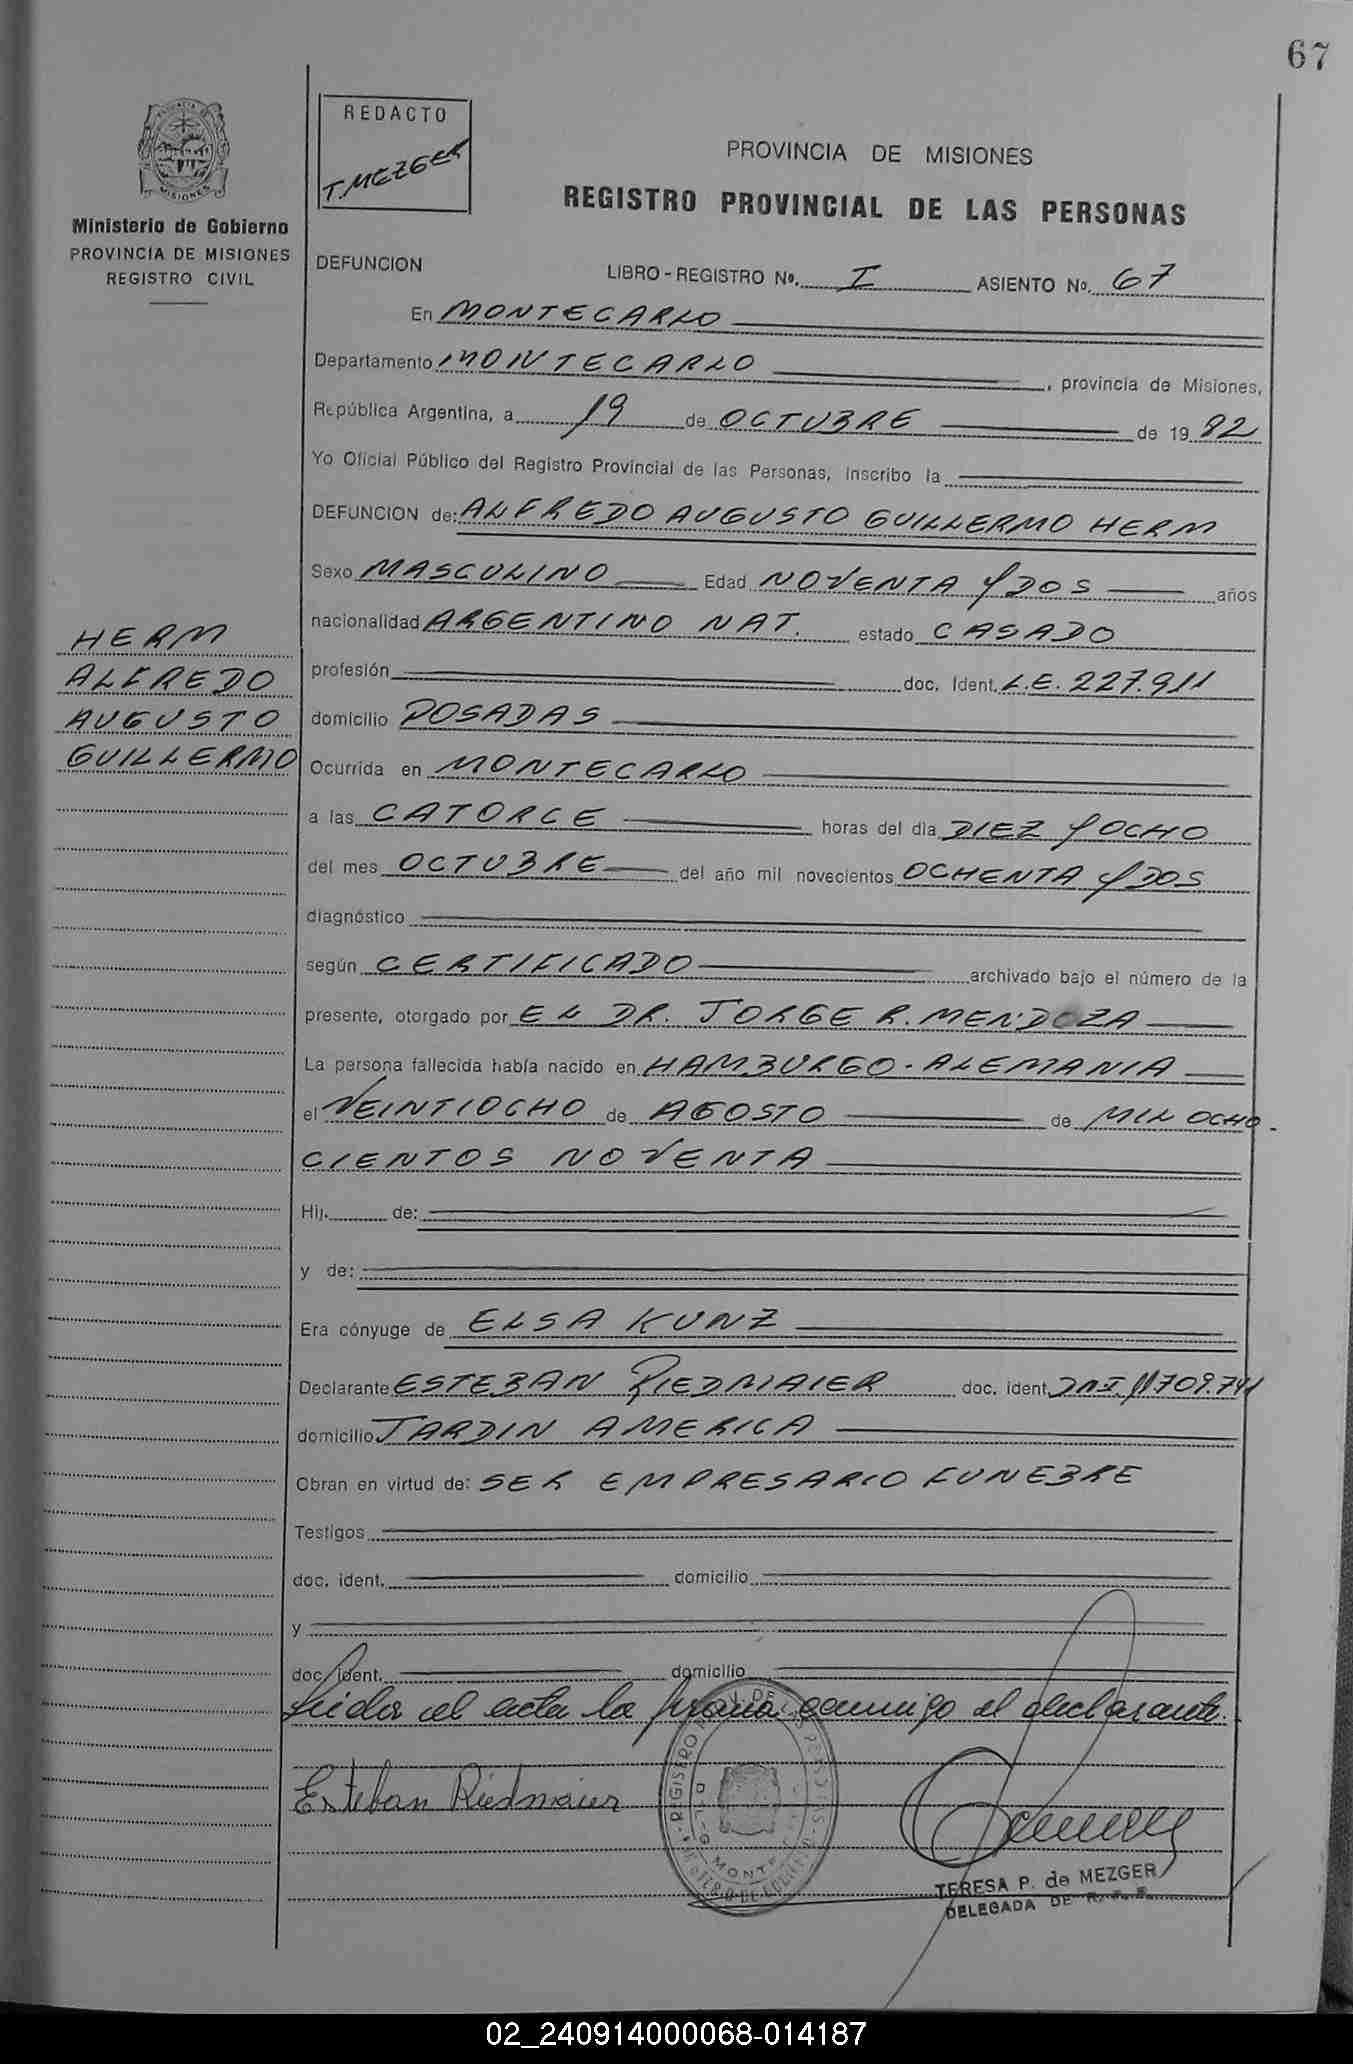 67
REDACTO
T. MEZGER
PROVINCIA DE MISIONES
REGISTRO PROVINCIAL DE LAS PERSONAS
MISIONES
Ministerio de Gobierno
PROVINCIA DE MISIONES
REGISTRO CIVIL
DEFUNCION
LIBRO - REGISTRO Nº. I ASIENTO Nº. 67
En MONTECARLO
Departamento MONTECARLO, provincia de Misiones,
República Argentina, a 19 de OCTUBRE de 19 82
Yo Oficial Público del Registro Provincial de las Personas, inscribo la
DEFUNCION de: ALFREDO AUGUSTO GUILLERMO HERM
Sexo MASCULINO Edad NOVENTA Y DOS años
nacionalidad ARGENTINO NAT. estado CASADO
HERM
ALFREDO
AUGUSTO
GUILLERMO
profesión doc. Ident. L.E. 227.911
domicilio POSADAS
Ocurrida en MONTECARLO
a las CATORCE horas del día DIEZ Y OCHO
del mes OCTUBRE del año mil novecientos OCHENTA Y DOS
diagnóstico
según CERTIFICADO archivado bajo el número de la
presente, otorgado por EL DR. JORGE R. MENDOZA
La persona fallecida había nacido en HAMBURGO - ALEMANIA
el VEINTIOCHO de AGOSTO de MIL OCHO-
CIENTOS NOVENTA
Hij. de:
y de:
Era cónyuge de ELSA KUNZ
Declarante ESTEBAN RIEDMAIER doc. ident. DNI. 11.709.741
domicilio JARDIN AMERICA
Obran en virtud de: SER EMPRESARIO FUNEBRE
Testigos
doc. ident. domicilio
y
doc. ident. domicilio
Leida el acta la firma conmigo el declarante.
Esteban Riedmaier
TERESA P. de MEZGER
DELEGADA DE R. P. P.
02_240914000068-014187